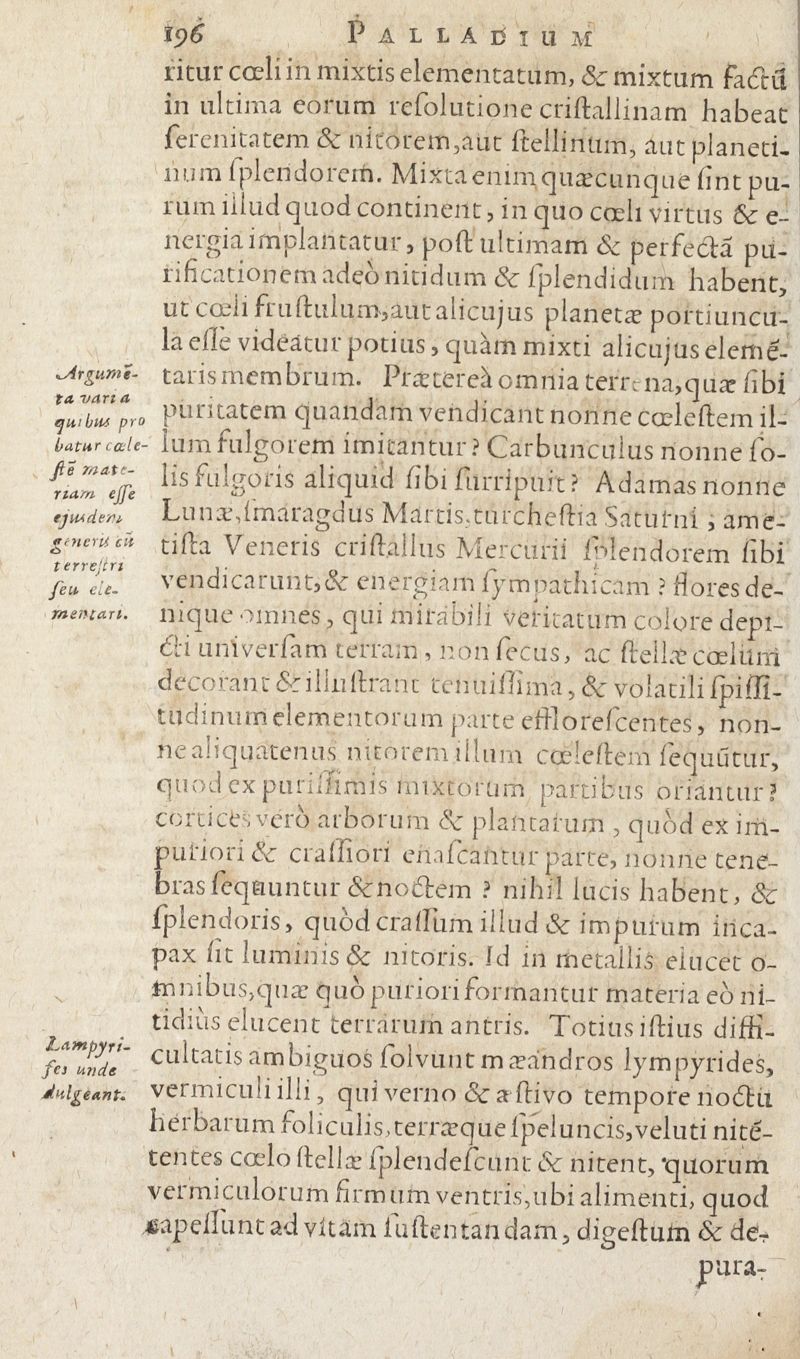 196 PALLADIUM
ritur cœli in mixtis elementatum, & mixtum factũ
in ultima eorum resolutione cristallinam habeat
serenitatem & nitorem, aut stellinum, aut planeti-
num splendorem. Mixta enim quæcunque sint pu-
rum illud quod continent, in quo cœli virtus & e-
nergia implantatur, post ultimam & perfectã pu-
rificationem adeò nitidum & splendidum habent,
ut cœli frustulum, aut alicujus planetæ portiuncu-
la esse videatur potius, quàm mixti alicujus elemẽ-
taris membrum. Prætereà omnia terrena, quæ sibi
puritatem quandam vendicant nonne cœlestem il-
lum fulgorem imitantur? Carbunculus nonne so-
lis fulgoris aliquid sibi surripuit? Adamas nonne
Lunæ, smaragdus Martis, turchestia Saturni; ame-
tista Veneris cristallus Mercurii splendorem sibi
vendicarunt, & energiam sympathicam? flores de-
nique omnes, qui mirabili veritatum colore depi-
cti universam terram, non secus, ac stellæ cœlum
decorant & illustrant tenuissima, & volatili spissi-
tudinum elementorum parte efflorescentes, non-
ne aliquatenus nitorem illum cœlestem sequũtur,
quod ex purissimis mixtorum partibus oriantur?
cortices verò arborum & plantarum, quòd ex im-
puriori & crassiori enascantur parte, nonne tene-
bras sequuntur & noctem? nihil lucis habent, &
splendoris, quòd crassum illud & impurum inca-
pax sit luminis & nitoris. Id in metallis elucet o-
mnibus, quæ quò puriori formantur materia eò ni-
tidiùs elucent terrarum antris. Totius istius diffi-
cultatis ambiguos solvunt mæandros lympyrides,
vermiculi illi, qui verno & æstivo tempore noctu
herbarum foliculis, terræque speluncis, veluti nitẽ-
tentes cœlo stellæ splendescunt & nitent, quorum
vermiculorum firmum ventris, ubi alimenti, quod
capessunt ad vitam sustentandam, digestum & de-
pura-
Argumẽ-
ta varia
quibus pro
batur cœle-
stẽ mate-
riam esse
ejusdem
generis cũ
terrestri
seu ele-
mentari.
Lampyri-
ses unde
fulgeant.